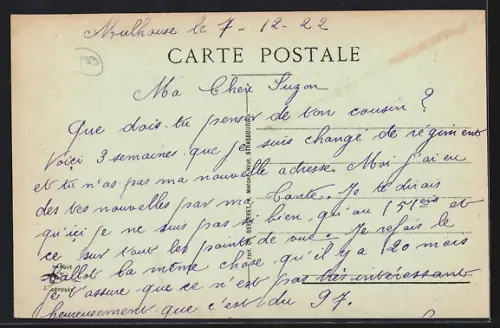 Mulhouse le 7-12-22
CARTE POSTALE
Ma Chère Suzon
Que dois-tu penser de ton cousin ?
Voici 3 semaines que je suis changé de régiment
et tu n'as pas ma nouvelle adresse. Moi j'ai eu
des tes nouvelles par ma Tante. Je te dirais
qu'ici je ne suis pas si bien, qu'au 151ème et
ce sur tout les points de vue. Je refais le
la même chose qu'il y a 20 mois
je t'assure que ce n'est pas très intéressant
heureusement que c'est du 97.